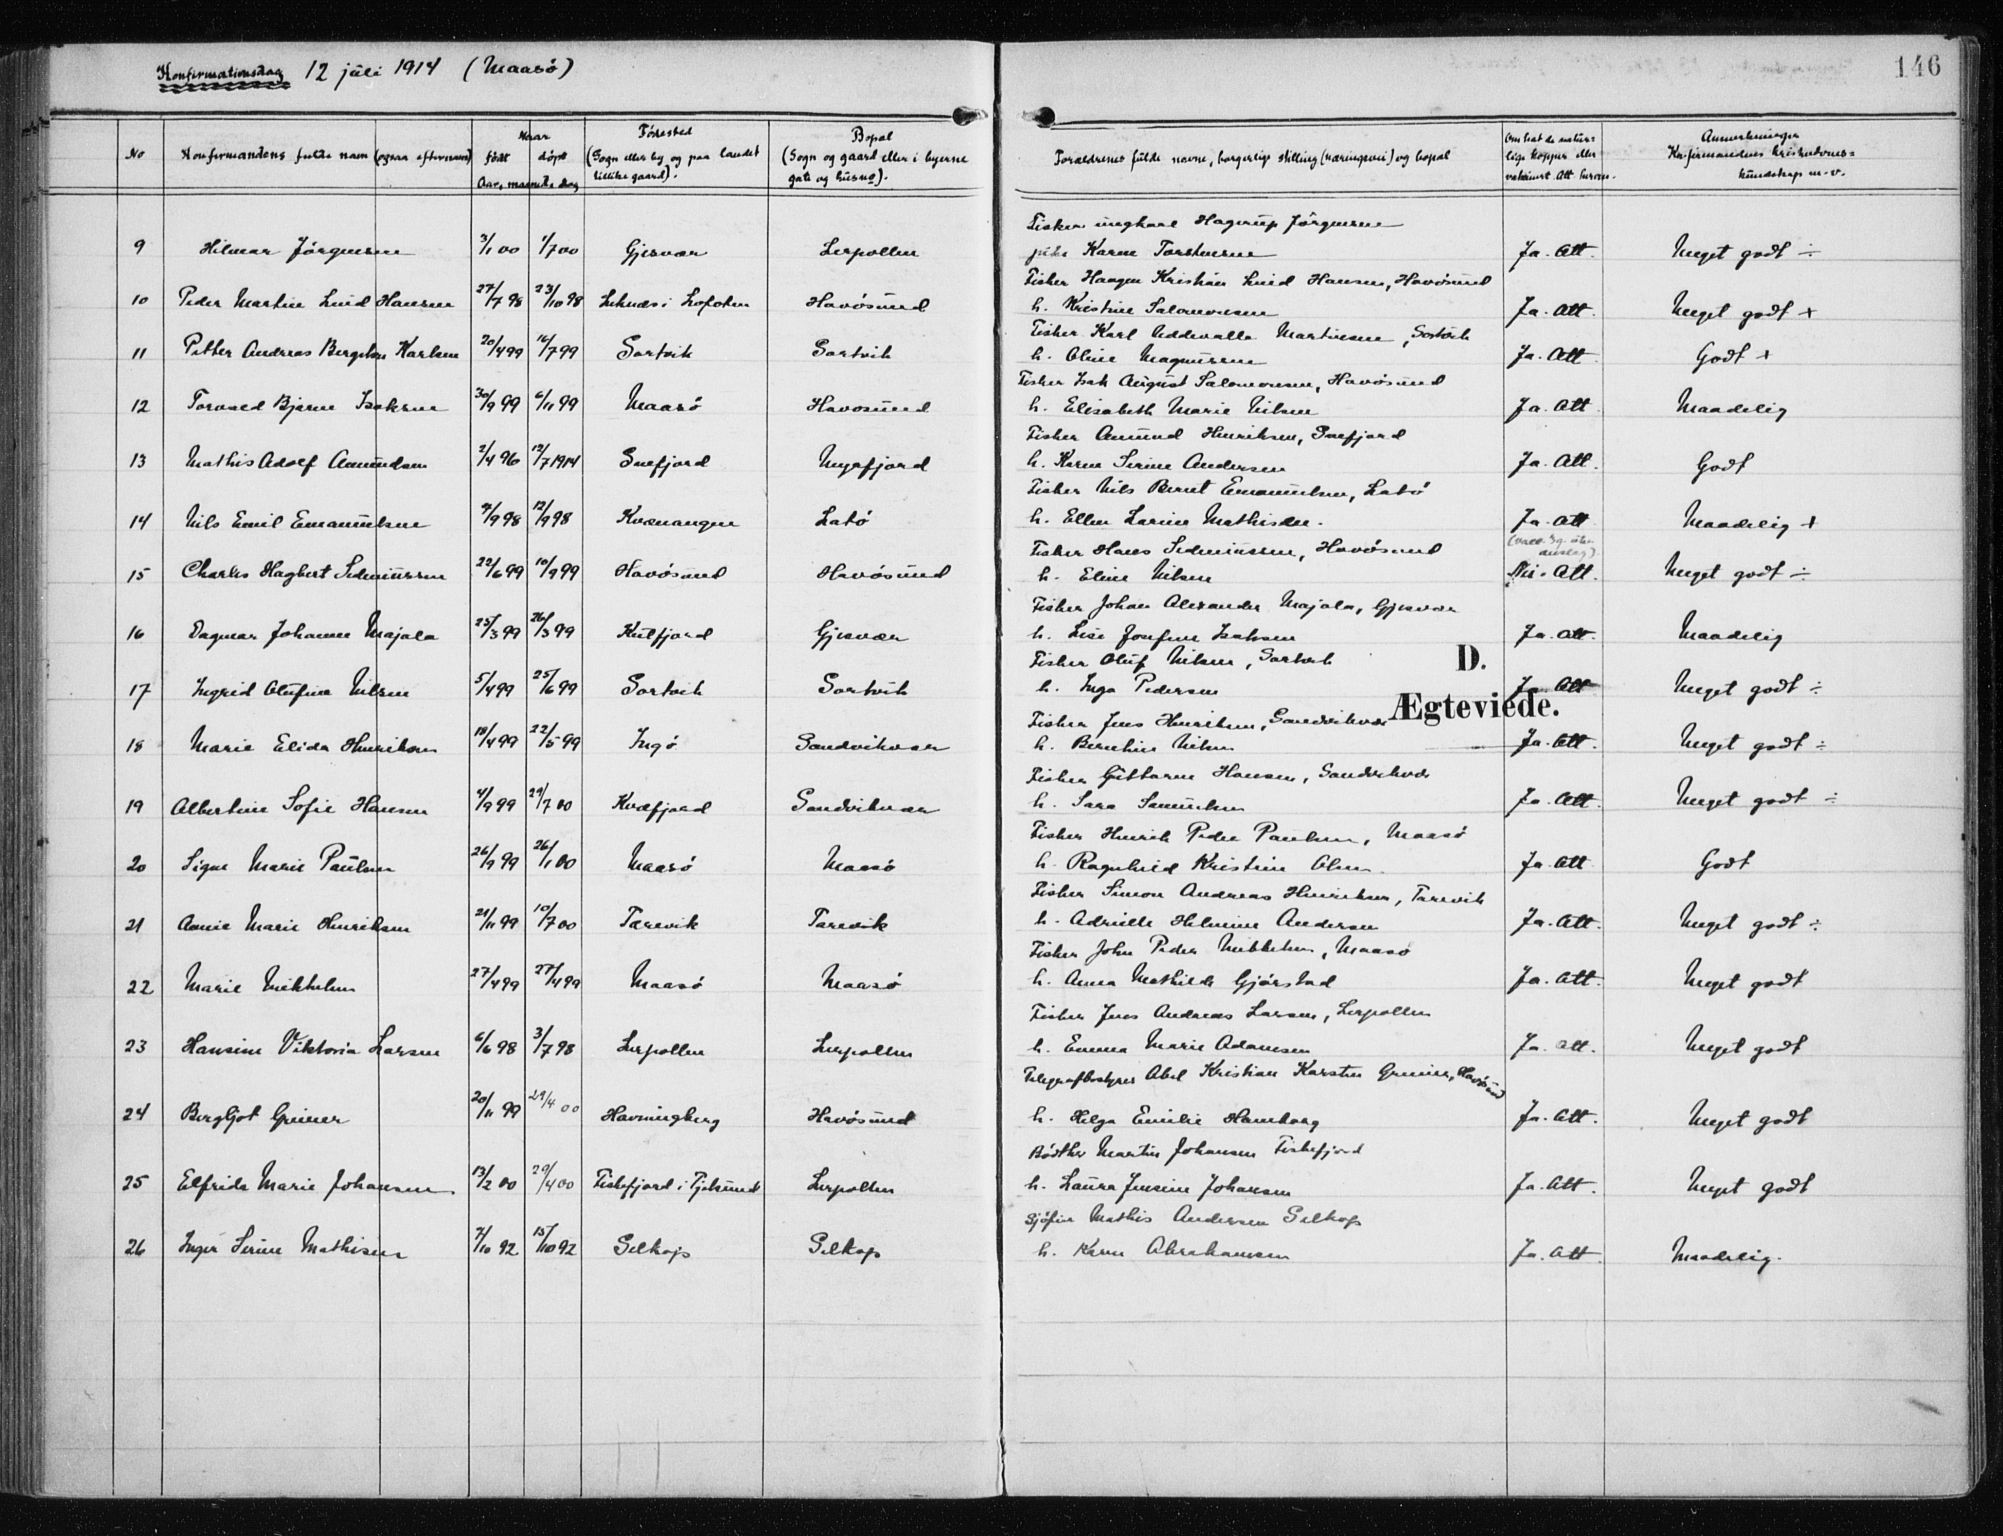 Konfirmationsdag 12 juli 1914 (Maasö)
146
No
Konfirmandens fulde navn (ogsaa efternavn)
født
døpt
Aar, maaned, dag
Födested (Sogn eller by og paa landet tillike gaard).
Bopæl (Sogn og gaard eller i byerne gate og husno).
Forældrenes fulde navne, borgerlige stilling (næringsvei) og bopæl
Om hat de naturlige kopper eller vakcinert. Att. herom.
Anmerkninger Konfirmandens kristendomskundskap m.v.
9 Hilmar Jörgensen 3/1 00 1/7 00 Gjesvær Lerpollen
Fisker ungkarl Hagerup Jörgensen
pike Karen Torstensen Ja. Att. Meget godt ÷
10 Peder Martin Lind Hansen 27/7 98 23/10 98 Leknæs i Lofoten Havösund
Fisker Haagen Kristian Lind Hansen, Havösund
h. Kristine Salomonsen Ja. Att. Meget godt +
11 Petter Andreas Bergeton Karlsen 20/4 99 16/7 99 Sortvik Sortvik
Fisker Karl Uddevalla Martinsen, Sortvik
h. Oline Magnussen Ja. Att. Godt +
12 Torvald Bjarne Isaksen 30/9 99 6/11 99 Maasö Havosund
Fisker Isak August Salomonsen, Havösund
h. Elisabeth Marie Nilsen Ja. Att. Maadelig
13 Mathis Adolf Amundsen 2/4 96 12/7 1914 Snefjord Mygfjord
Fisker Amund Henriksen, Snefjord
h. Karen Serine Andersen Ja. Att. Godt
14 Nils Emil Emanuelsen 7/9 98 12/9 98 Kvænangen Latö
Fisker Nils Bernt Emanuelsen, Latö
h. Ellen Larine Mathisdtr. Ja. Att. Maadelig +
15 Charles Hagbert Sedeniussen 22/6 99 10/9 99 Havösund Havösund
Fisker Hans Sedeniussen, Havösund
(vacc. 3 g. uten anslag)
h. Eline Nilsen Nei. Att. Meget godt ÷
16 Dagmar Johanne Majala 25/3 99 26/3 99 Kulfjord Gjesvær
Fisker Johan Alexander Majala, Gjesvær
h. Lise Josefine Isaksen Ja. Att. Maadelig
D.
Ægteviede.
17 Ingrid Olufine Nilsen 5/4 99 25/6 99 Sortvik Sortvik
Fisker Oluf Nilsen, Sortvik
h. Inga Pedersen Ja. Att. Meget godt ÷
18 Marie Elida Henriksen 18/4 99 22/5 99 Ingö Sandvikvær
Fisker Jens Henriksen, Sandvikvær
h. Berntine Nilsen Ja. Att. Meget godt ÷
19 Albertine Sofie Hansen 4/9 99 29/7 00 Kvæfjord Sandvikvær
Fisker Guttorm Hansen, Sandvikvær
h. Sara Samuelsen Ja. Att. Meget godt ÷
20 Signe Marie Paulsen 26/9 99 26/1 00 Maasö Maasö
Fisker Henrik Peder Paulsen, Maasö
h. Ragnhild Kristine Olsen Ja. Att. Godt
21 Annie Marie Henriksen 21/11 99 10/7 00 Tarevik Tarevik
Fisker Simon Andreas Henriksen, Tarevik
h. Adrielle Helmine Andersen Ja. Att. Meget godt ÷
22 Marie Mikkelsen 27/4 99 27/4 99 Maasö Maasö
Fisker John Peder Mikkelsen, Maasö
h. Anna Mathilde Gjörstad Ja. Att. Meget godt
23 Hansine Viktoria Larsen 6/6 98 3/7 98 Lerpollen Lerpollen
Fisker Jens Andreas Larsen, Lerpollen
h. Emma Marie Adamsen Ja. Att. Meget godt
24 Bergljot Greiner 20/11 99 29/4 00 Havningberg Havösund
Telegrafbestyrer Abel Kristian Karsten Greiner, Havösund
h. Helga Emilie Hamborg Ja. Att. Meget godt
25 Elfrida Marie Johansen 13/2 00 29/4 00 Fiskefjord i Tjelsund Lerpollen
Bödker Martin Johansen Fiskefjord
h. Laura Jensine Johansen Ja. Att. Meget godt
26 Inger Serine Mathisen 7/10 92 15/10 92 Selkop Selkop
Sjöfin Mathis Andersen Selkop
h. Karen Abrahamsen Ja. Att. Maadelig.